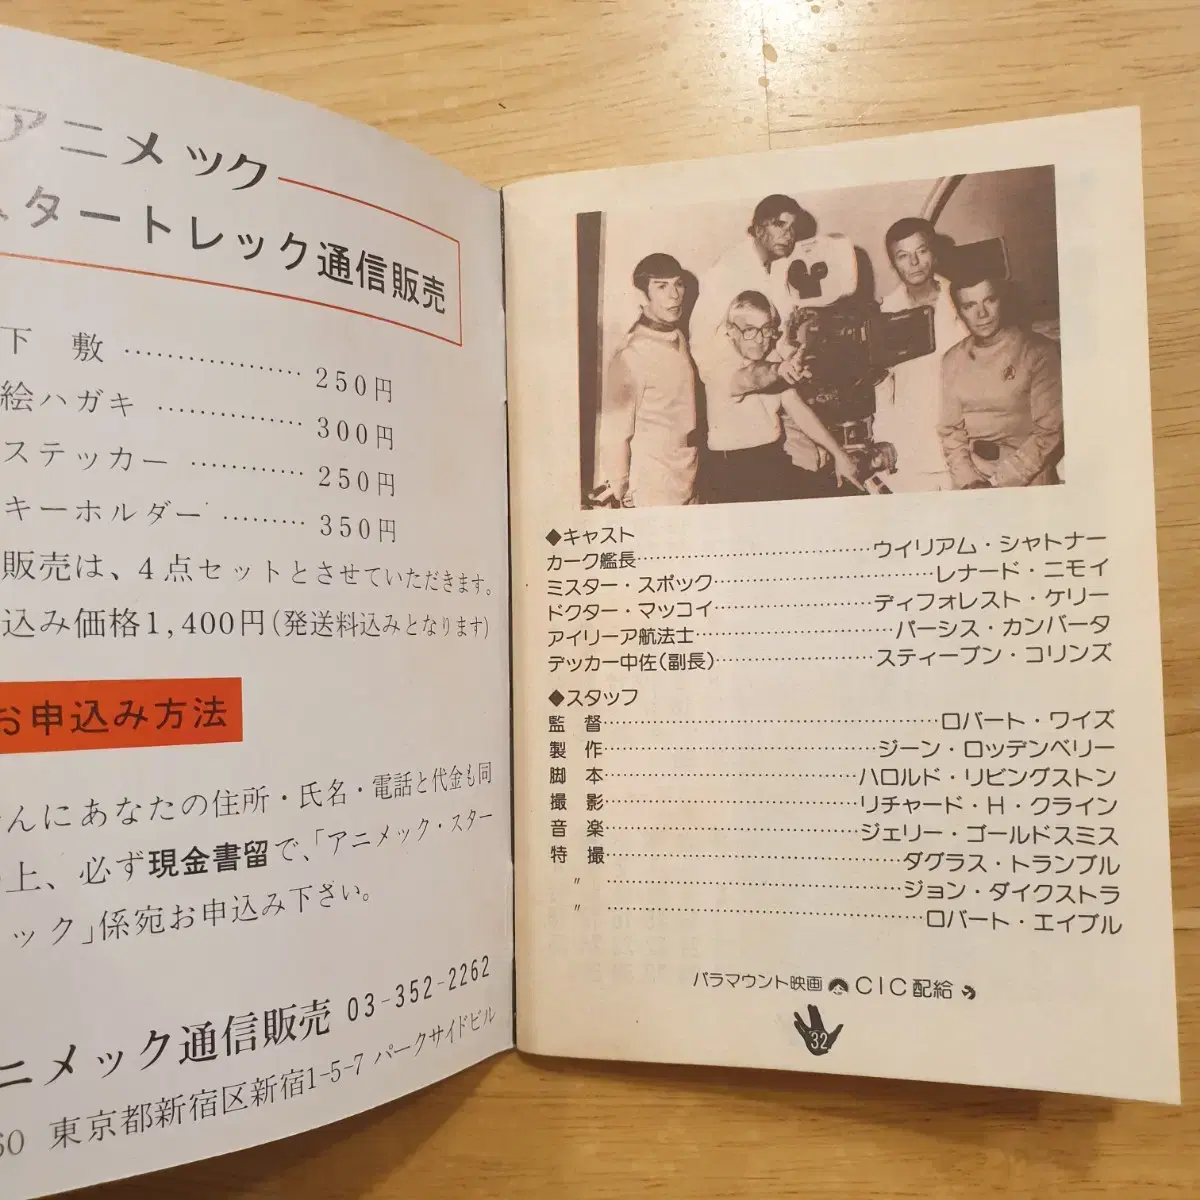 アニメック
スタートレック通信販売
下敷 250円
絵ハガキ 300円
ステッカー 250円
キーホルダー 350円
販売は、4点セットとさせていただきます。
込み価格1,400円(発送料込みとなります)
お申込み方法
んにあなたの住所・氏名・電話と代金も同
上、必ず現金書留で、「アニメック・スター
ック」係宛お申込み下さい。
ニメック通信販売 03-352-2262
60 東京都新宿区新宿1-5-7 パークサイドビル
◆キャスト
カーク艦長 ウイリアム・シャトナー
ミスター・スポック レナード・ニモイ
ドクター・マッコイ ディフォレスト・ケリー
アイリーア航法士 パーシス・カンバータ
デッカー中佐(副長) スティーブン・コリンズ
◆スタッフ
監督 ロバート・ワイズ
製作 ジーン・ロッデンベリー
脚本 ハロルド・リビングストン
撮影 リチャード・H・クライン
音楽 ジェリー・ゴールドスミス
特撮 ダグラス・トランブル
〃 ジョン・ダイクストラ
〃 ロバート・エイブル
パラマウント映画 CIC配給
32